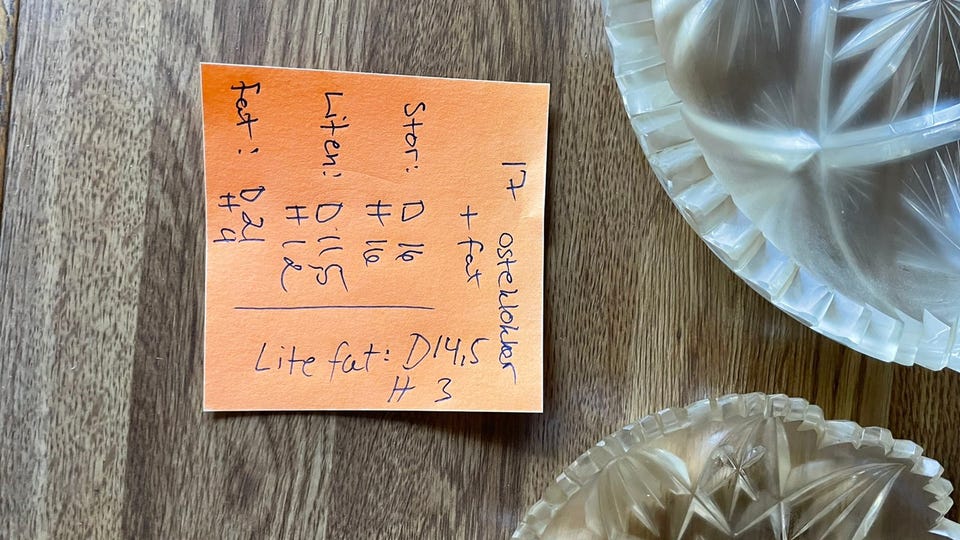 17 osteklokker
+ fat
Stor: D 16
H 16
Liten: D 11,5
H 12
Fat: D 24
H 4
Lite fat: D14,5
H 3